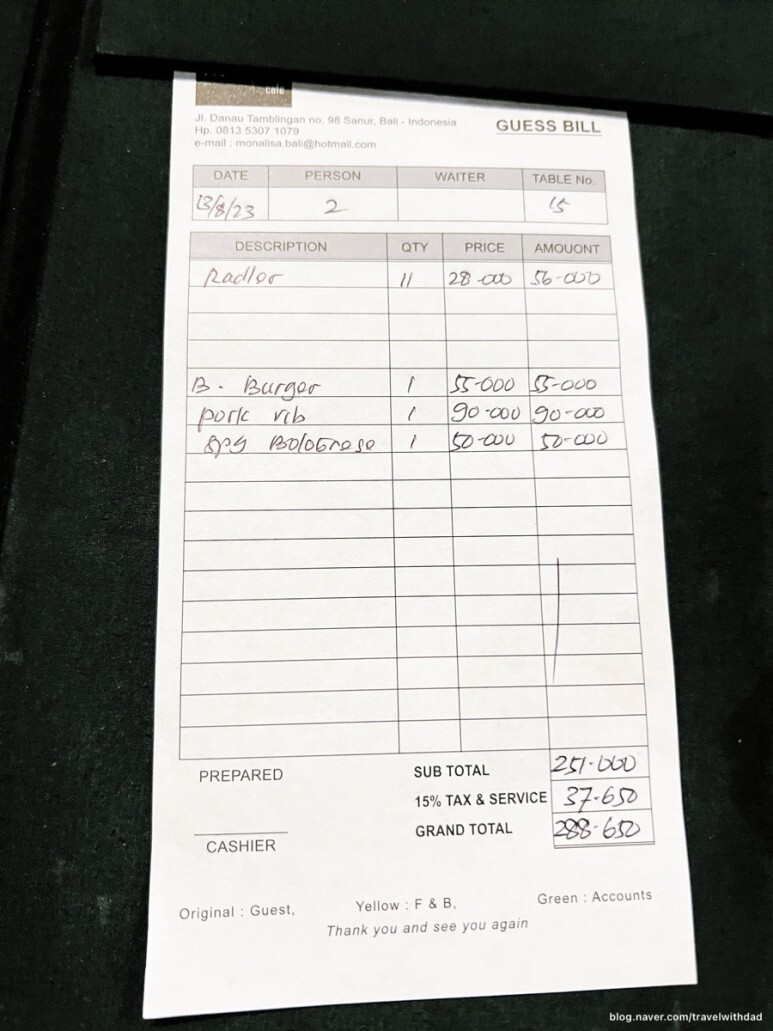 cafe
Jl. Danau Tamblingan no. 98 Sanur, Bali - Indonesia
Hp. 0813 5307 1079
e-mail : monalisa.bali@hotmail.com
GUESS BILL
DATE PERSON WAITER TABLE No.
13/8/23 2 15
DESCRIPTION QTY PRICE AMOUONT
Radler 11 28-000 56-000
B. Burger 1 55-000 55-000
pork rib 1 90-000 90-000
Spg Bolognese 1 50-000 50-000
PREPARED
SUB TOTAL 251-000
15% TAX & SERVICE 37-650
GRAND TOTAL 288-650
CASHIER
Original : Guest, Yellow : F & B, Green : Accounts
Thank you and see you again
blog.naver.com/travelwithdad